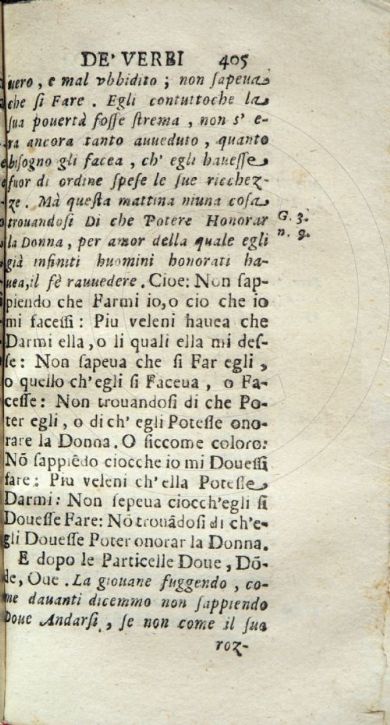 DE' VERBI 405
uero, e mal vbbidito; non sapeua
che si Fare. Egli contuttoche la
sua pouertà fosse strema, non s' e-
ra ancora tanto auueduto, quanto
bisogno gli facea, ch' egli hauesse
fuor di ordine spese le sue ricchez-
ze. Mà questa mattina niuna cosa
trouandosi Di che Potere Honorar
G. 3.
la Donna, per amor della quale egli
n. 9.
già infiniti huomini honorati ha-
uea, il fè rauuedere. Cioe: Non sap-
piendo che Farmi io, o cio che io
mi facessi: Piu veleni hauea che
Darmi ella, o li quali ella mi des-
se: Non sapeua che si Far egli,
o quello ch'egli si Faceua, o Fa-
cesse: Non trouandosi di che Po-
ter egli, o di ch' egli Potesse ono-
rare la Donna. O siccome coloro:
Nō sappiēdo ciocche io mi Douessi
fare: Piu veleni ch'ella Potesse
Darmi: Non sepeua ciocch'egli si
Douesse Fare: Nō trouādosi di ch'e-
gli Douesse Poter onorar la Donna.
E dopo le Particelle Doue, Dō-
de, Oue. La giouane fuggendo, co-
me dauanti dicemmo non sappiendo
Doue Andarsi, se non come il suo
roz-